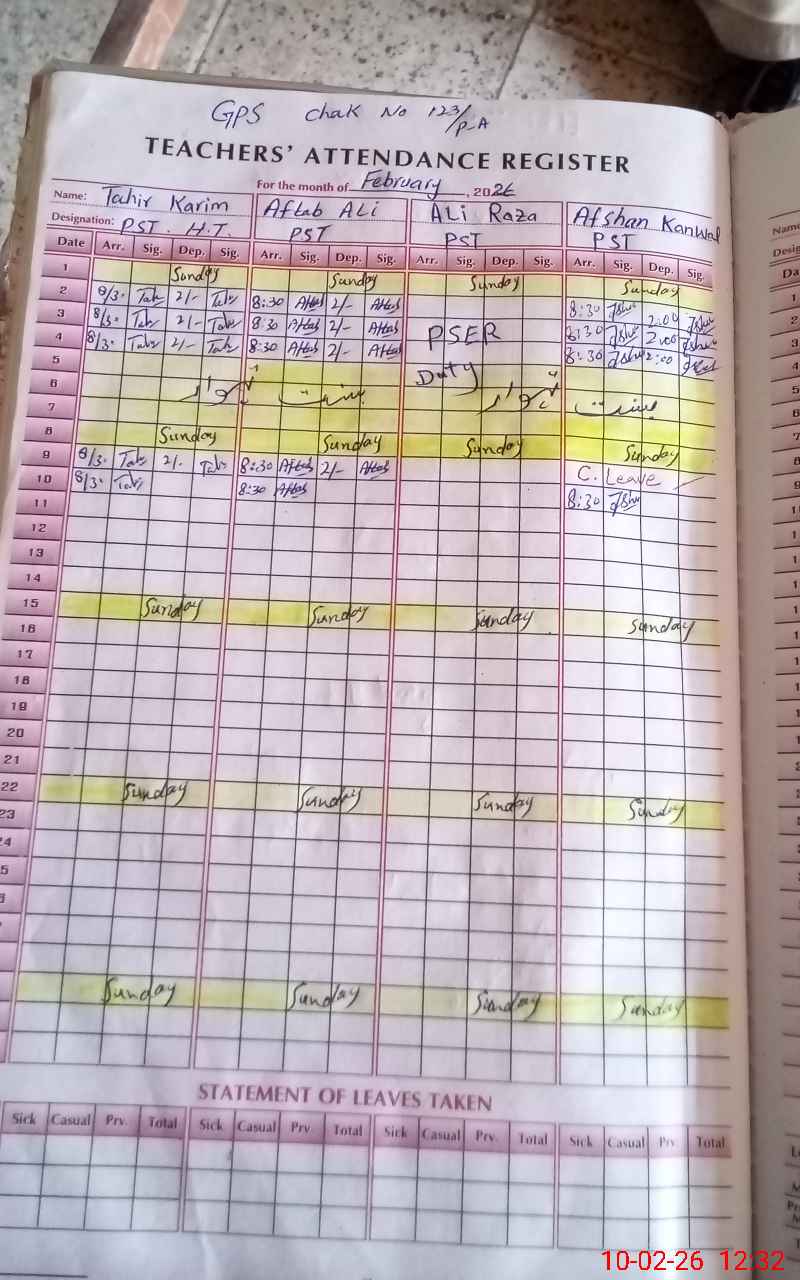 GPS Chak No 123/P-A
TEACHERS' ATTENDANCE REGISTER
For the month of February, 2026
Name: Tahir Karim Aftab ALi ALi Raza Afshan Kanwal
Designation: PST. H.T. PST PST PST
Date Arr. Sig. Dep. Sig. Arr. Sig. Dep. Sig. Arr. Sig. Dep. Sig. Arr. Sig. Dep. Sig.
1 Sunday Sunday Sunday Sunday
2 8/3. Tah 2/- Tah 8:30 Aftab 2/- Aftab 8:30 2:00
3 8/3. Tah 2/- Tah 8:30 Aftab 2/- Aftab PSER 8:30 2:00
4 8/3. Tah 2/- Tah 8:30 Aftab 2/- Aftab Duty 8:30 2:00
5
6 بسنت تہوار بسنت تہوار
7
8 Sunday Sunday Sunday Sunday
9 8/3. Tah 2/. Tah 8:30 Aftab 2/- Aftab C. Leave
10 8/3. Tah 8:30 Aftab 8:30
11
12
13
14
15 Sunday Sunday Sunday Sunday
16
17
18
19
20
21
22 Sunday Sunday Sunday Sunday
23
4
5
Sunday Sunday Sunday Sunday
STATEMENT OF LEAVES TAKEN
Sick Casual Prv. Total Sick Casual Prv. Total Sick Casual Prv. Total Sick Casual Prv Total
10-02-26 12:32